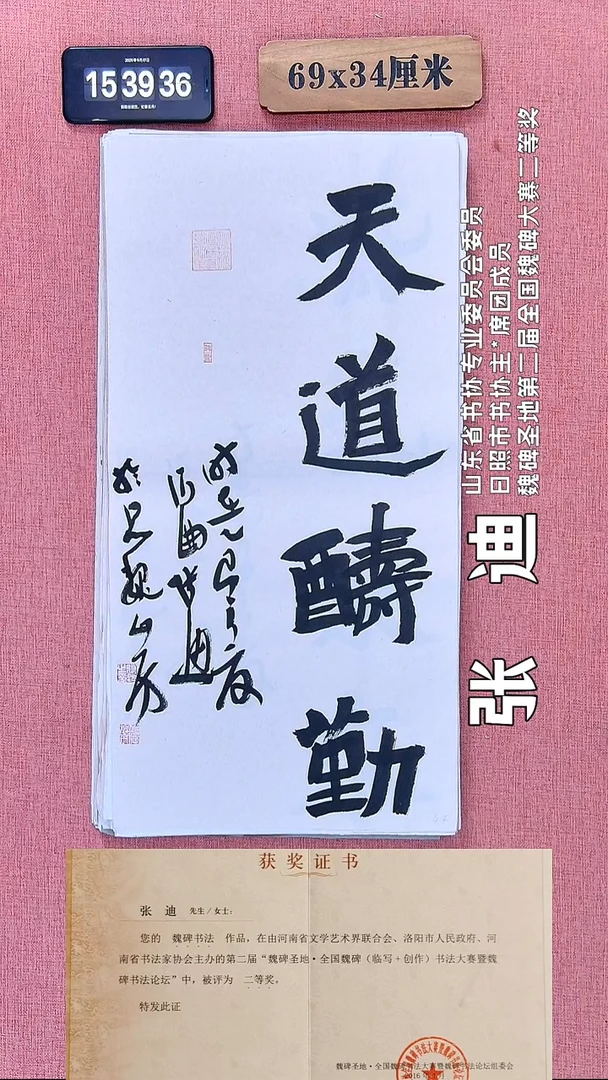 15 39 36
69x34厘米
天道酬勤
山东省书协专业委员会委员
日照市书协主*席团成员
魏碑圣地第二届全国魏碑大赛二等奖
张 迪
获奖证书
张 迪 先生/女士：
您的 魏碑书法 作品，在由河南省文学艺术界联合会、洛阳市人民政府、河
南省书法家协会主办的第二届“魏碑圣地·全国魏碑（临写+创作）书法大赛暨魏
碑书法论坛”中，被评为 二等奖。
特发此证
魏碑圣地·全国魏碑书法大赛暨魏碑书法论坛组委会